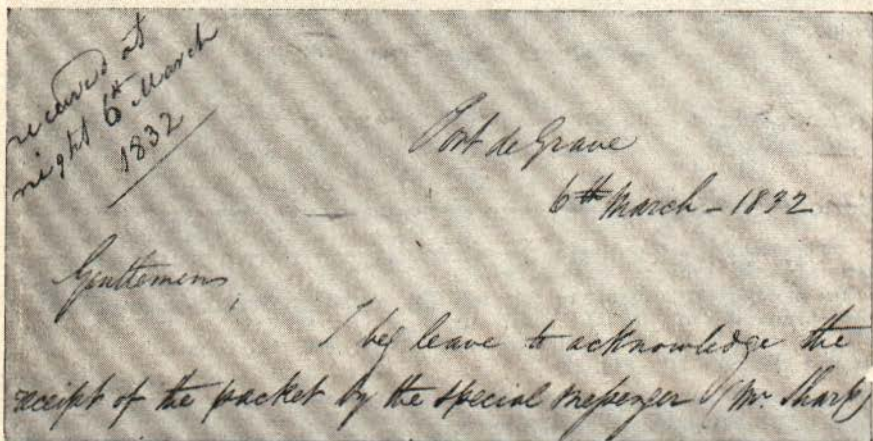 received at
night 6th March
1832
Port de Grave
6th March - 1832
Gentlemen,
I beg leave to acknowledge the
receipt of the packet by the special messenger (Mr. Sharp)